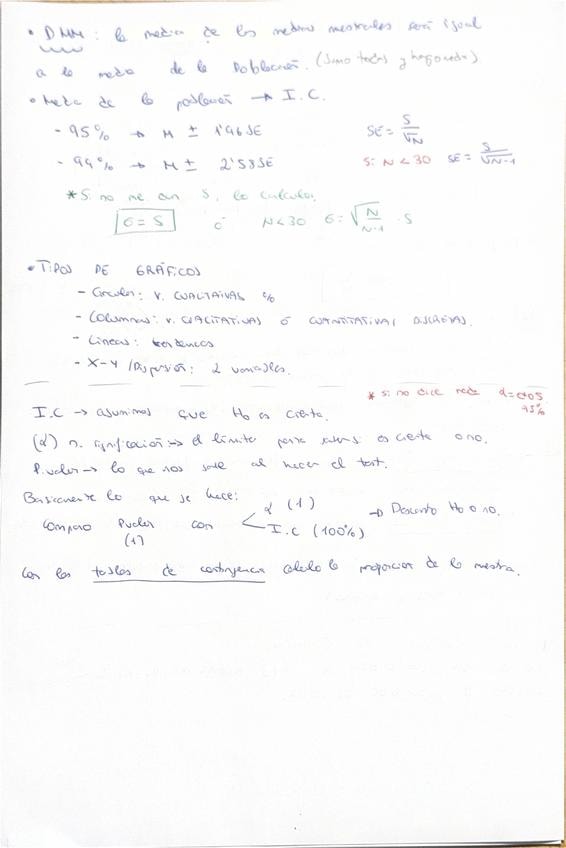 • DMM: la media de las medias muestrales será igual
a la media de la Población. (Sumo todas y hago media)
• Media de la población → I.C.
- 95% → M ± 1'96 SE SE = S/√N
- 99% → M ± 2'58 SE Si N < 30 SE = S/√N-1
* Si no me dan S, lo calculo.
σ = S ó N<30 σ = √N/N-1 · S
• TIPOS DE GRÁFICOS
- Circular: V. CUALITATIVAS %
- Columnas: V. CUALITATIVAS Ó CUANTITATIVAS DISCRETAS.
- Líneas: tendencias
- X-Y / Dispersión: 2 variables.
* Si no dice nada α = 0'05
95%
I.C → asumimos que Ho es cierta.
(α) n. significación → el límite para saber si es cierta o no.
P.valor → lo que nos sale al hacer el test.
Basicamente lo que se hace:
Comparo P.valor con α (1) → Descarto Ho o no.
(1) I.C (100%)
Con las tablas de contingencia calculo la proporción de la muestra.